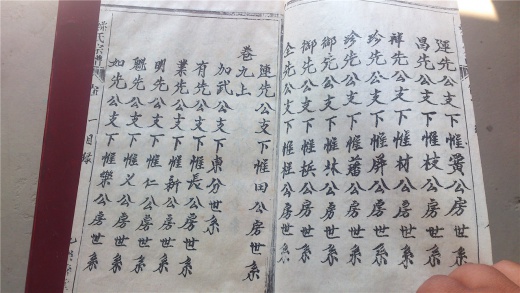 運先公支下惟黃公房世系
昌先公支下惟枝公房世系
祥先公支下惟材公房世系
珍先公支下惟屏公房世系
珍先公支下惟藩公房世系
御先公支下惟林公房世系
御先公支下惟兵公房世系
全先公支下惟極公房世系
連先公支下惟田公房世系
卷九上
加武公支下東分世系
有先公支下惟長公房世系
業先公支下惟新公房世系
明先公支下惟仁公房世系
魁先公支下惟义公房世系
如先公支下惟樂公房世系
氏宗譜
一
目錄